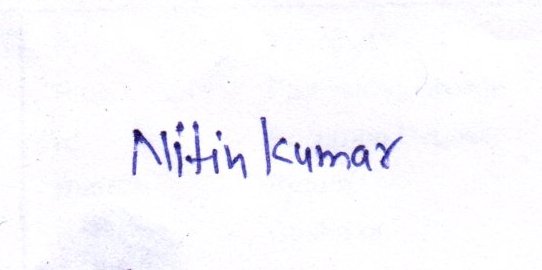 Nitin kumar